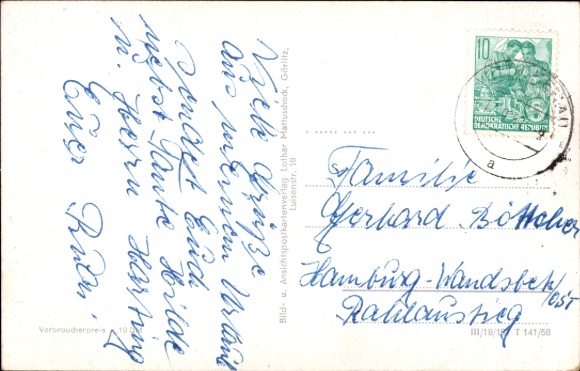 Viele Grüße
aus meinem Urlaub
sendet Euch
nebst Tante Hilde
u. Herrn Hartung
Euer
Verbraucherpreis
Bild- u. Ansichtspostkartenverlag Lothar Mattuscheck, Görlitz,
Luisenstr. 19
10
DEUTSCHE
DEMOKRATISCHE REPUBLIK
a
Familie
Gerhard Böttcher
Hamburg-Wandsbek/
Ost
Rahlaustieg
III/18/18 T 141/58